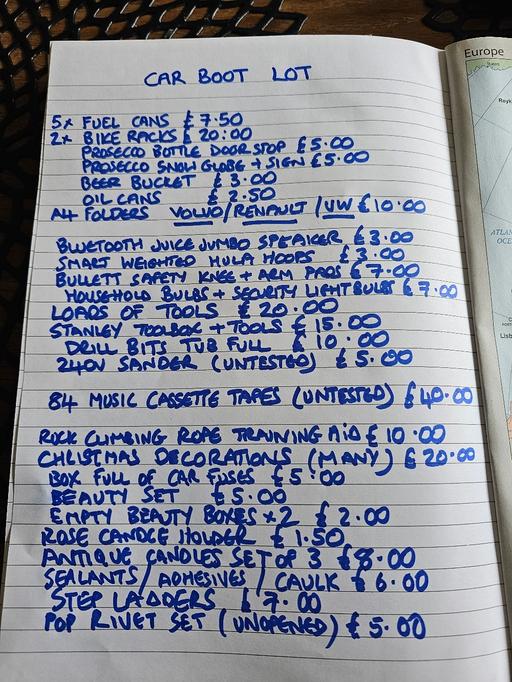 CAR BOOT LOT
5x FUEL CANS £7.50
2x BIKE RACKS £20:00
PROSECCO BOTTLE DOOR STOP £5.00
PROSECCO SNOW GLOBE + SIGN £5.00
BEER BUCKET £3.00
OIL CANS £2.50
A4 FOLDERS VOLVO/RENAULT/VW £10.00
BLUETOOTH JUICE JUMBO SPEAKER £3.00
SMART WEIGHTED HULA HOOPS £3.00
BULLETT SAFETY KNEE + ARM PADS £7.00
HOUSEHOLD BULBS + SECURITY LIGHT BULBS £7.00
LOADS OF TOOLS £20.00
STANLEY TOOLBOX + TOOLS £15.00
DRILL BITS TUB FULL £10.00
240V SANDER (UNTESTED) £5.00
84 MUSIC CASSETTE TAPES (UNTESTED) £40.00
ROCK CLIMBING ROPE TRAINING AID £10.00
CHRISTMAS DECORATIONS (MANY) £20.00
BOX FULL OF CAR FUSES £5.00
BEAUTY SET £5.00
EMPTY BEAUTY BOXES x2 £2.00
ROSE CANDLE HOLDER £1.50
ANTIQUE CANDLES SET OF 3 £8.00
SEALANTS/ADHESIVES/CAULK £6.00
STEP LADDERS £7.00
POP RIVET SET (UNOPENED) £5.00
Europe